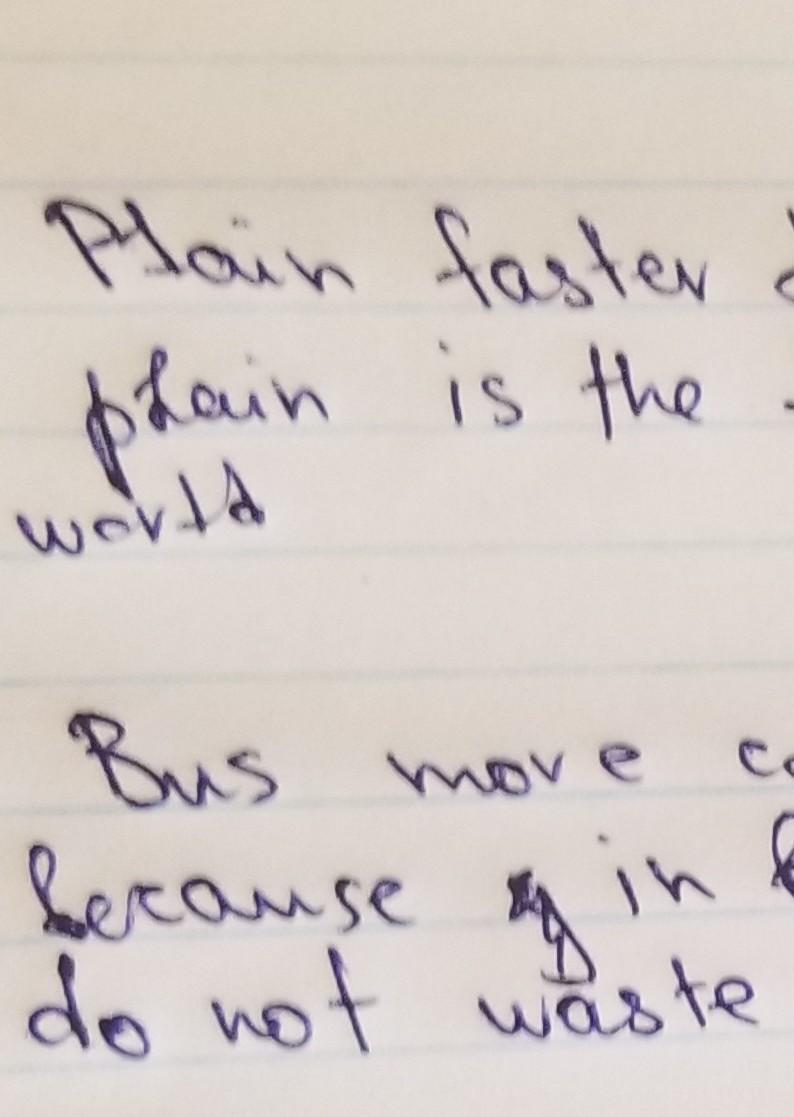 Plain faster
plain is the
world
Bus move
because in
do not waste